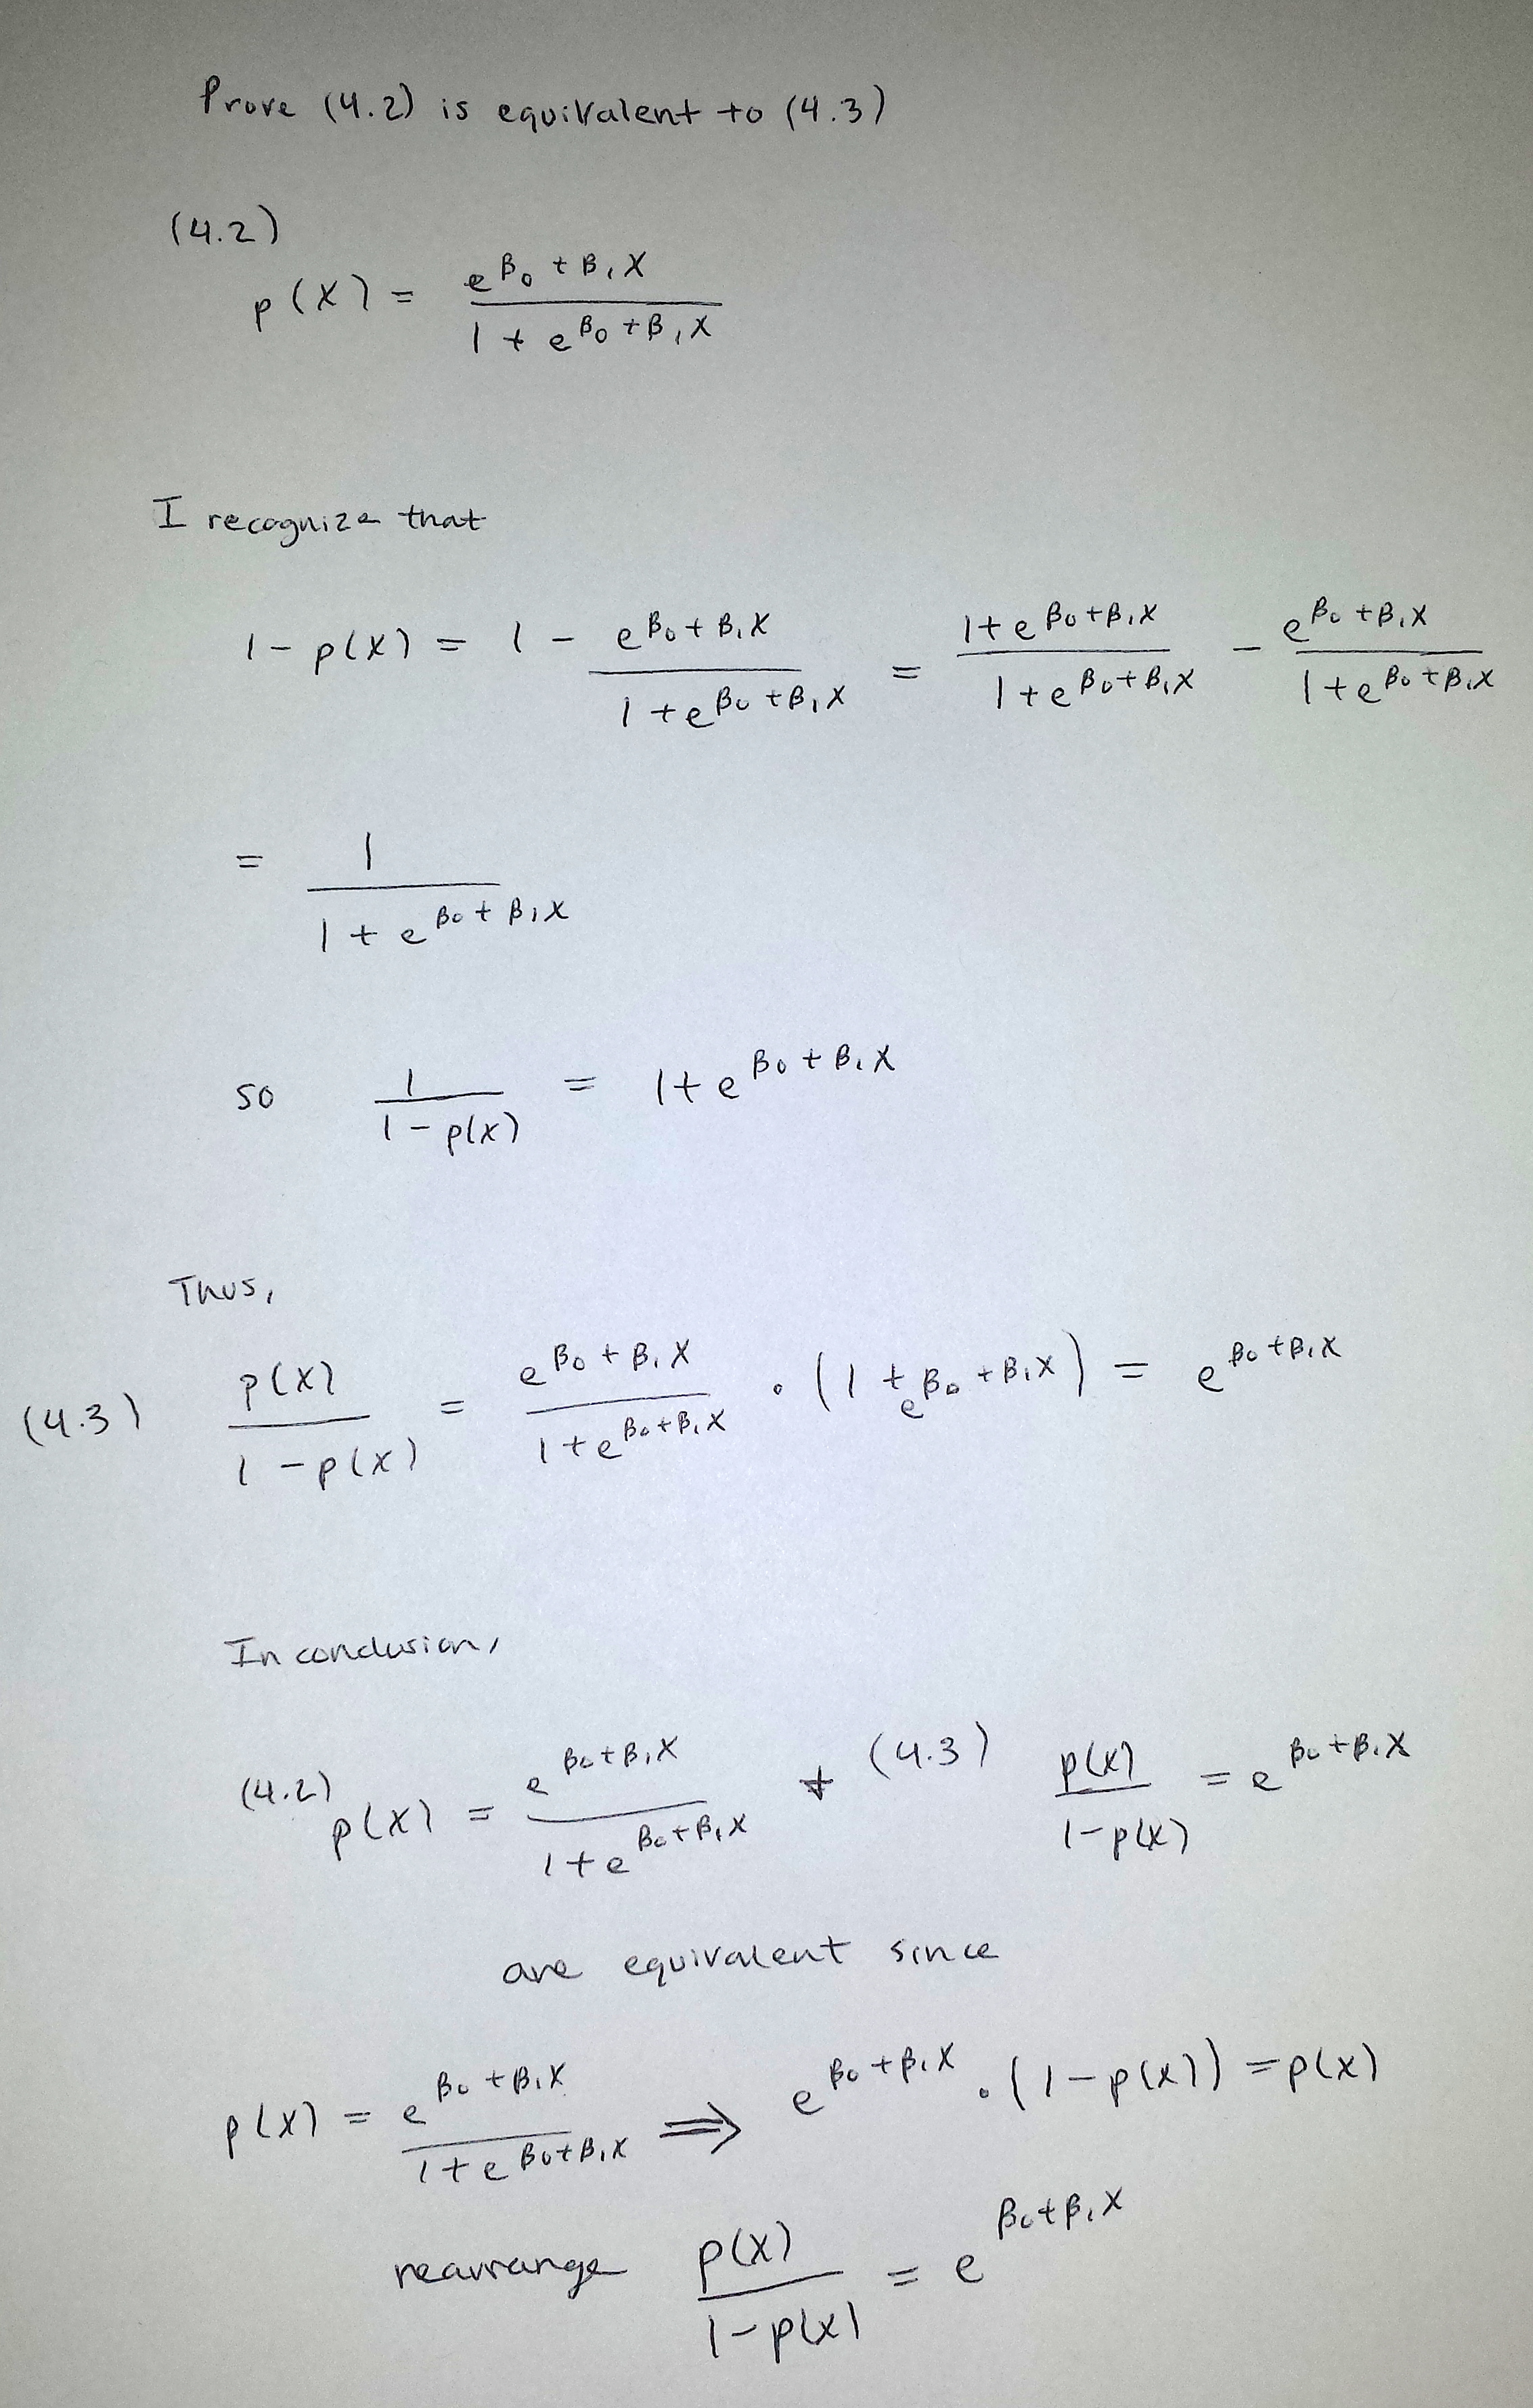 Prove (4.2) is equivalent to (4.3)
(4.2)
p(X) = e^{β₀ + β₁X} / (1 + e^{β₀ + β₁X})
I recognize that
1 - p(X) = 1 - e^{β₀ + β₁X} / (1 + e^{β₀ + β₁X}) = (1 + e^{β₀ + β₁X}) / (1 + e^{β₀ + β₁X}) - e^{β₀ + β₁X} / (1 + e^{β₀ + β₁X})
= 1 / (1 + e^{β₀ + β₁X})
so 1 / (1 - p(X)) = 1 + e^{β₀ + β₁X}
Thus,
(4.3) p(X) / (1 - p(X)) = e^{β₀ + β₁X} / (1 + e^{β₀ + β₁X}) · (1 + e^{β₀ + β₁X}) = e^{β₀ + β₁X}
In conclusion,
(4.2) p(X) = e^{β₀ + β₁X} / (1 + e^{β₀ + β₁X}) + (4.3) p(X) / (1 - p(X)) = e^{β₀ + β₁X}
are equivalent since
p(X) = e^{β₀ + β₁X} / (1 + e^{β₀ + β₁X}) ⇒ e^{β₀ + β₁X} · (1 - p(X)) = p(X)
rearrange p(X) / (1 - p(X)) = e^{β₀ + β₁X}